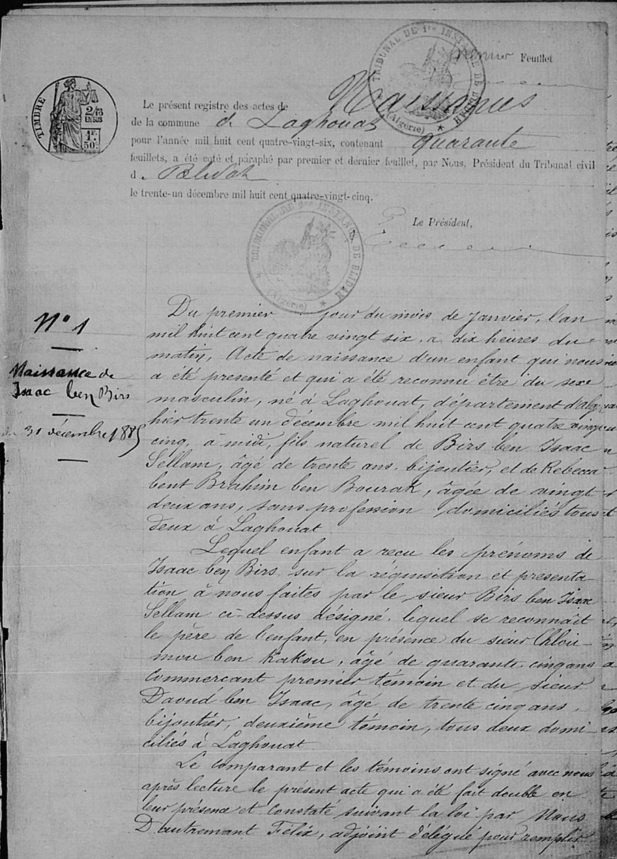 premier Feuillet
TRIBUNAL DE 1re INSTANCE DE BLIDAH
(Algérie)
TIMBRE
1F.
50c.
Le présent registre des actes de Naissances
de la commune de Laghouat
pour l'année mil huit cent quatre-vingt-six, contenant quarante
feuillets, a été coté et paraphé par premier et dernier feuillet, par Nous, Président du Tribunal civil
d Blidah
le trente-un décembre mil huit cent quatre-vingt-cinq.
Le Président,
TRIBUNAL DE 1re INSTANCE DE BLIDAH
(Algérie)
N° 1
Naissance de
Isaac ben Birs
31 décembre 1885
Du premier jour du mois de Janvier, l'an
mil huit cent quatre vingt six, a dix heures du
matin, Acte de naissance d'un enfant qui nous
a été presenté et qui a été reconnu être du sexe
masculin, né à Laghouat, département d'Alger
hier trente un décembre mil huit cent quatre vingt
cinq, à midi, fils naturel de Birs ben Isaac
Sellam, âgé de trente ans, bijoutier, et de Rebecca
bent Brahin ben Bourak, âgée de vingt
deux ans, sans profession, domiciliés tous
deux à Laghouat.
Lequel enfant a recu les prénoms de
Isaac ben Birs, sur la réquisition et presenta
tion à nous faites par le sieur Birs ben Isaac
Sellam ci-dessus désigné, lequel se reconnaît
le père de l'enfant, en présence du sieur Chloū
mou ben Kakou, âgé de quarante cinq ans
Commercant premier témoin et du sieur
Daoud ben Isaac, âgé de trente cinq ans,
bijoutier, deuxième témoin, tous deux domi
ciliés à Laghouat
Le Comparant et les témoins ont signé avec nous
après lecture le présent acte qui a été fait double en
leur présence et Constaté suivant la loi par Nous
Dautremant Félix, adjoint délégué pour remplir